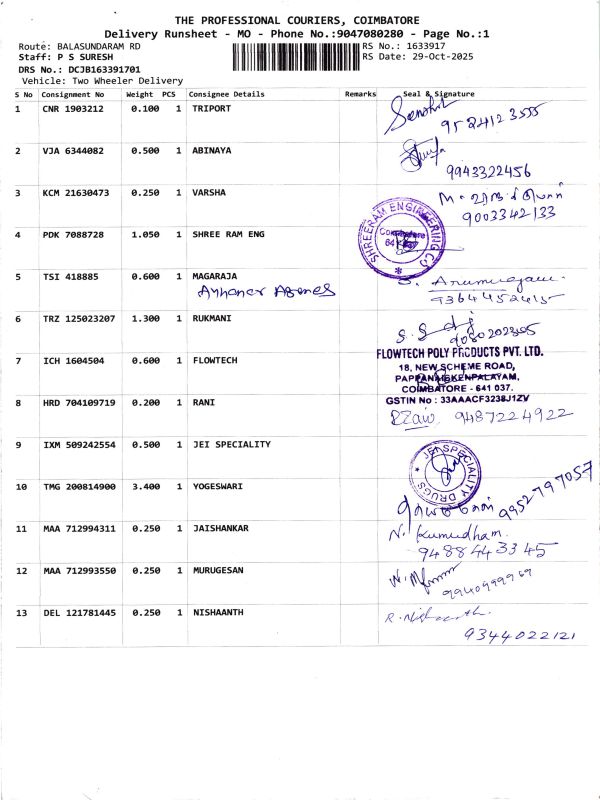 THE PROFESSIONAL COURIERS, COIMBATORE
Delivery Runsheet - MO - Phone No.:9047080280 - Page No.:1
Route: BALASUNDARAM RD RS No.: 1633917
Staff: P S SURESH RS Date: 29-Oct-2025
DRS No.: DCJB163391701
Vehicle: Two Wheeler Delivery
S No Consignment No Weight PCS Consignee Details Remarks Seal & Signature
1 CNR 1903212 0.100 1 TRIPORT
9524123555
2 VJA 6344082 0.500 1 ABINAYA
9943322456
3 KCM 21630473 0.250 1 VARSHA
9003342133
4 PDK 7088728 1.050 1 SHREE RAM ENG
SHREERAM ENGINEERING CO
Coimbatore
5 TSI 418885 0.600 1 MAGARAJA
S. Arumugam
9364452415
6 TRZ 125023207 1.300 1 RUKMANI
9080202305
7 ICH 1604504 0.600 1 FLOWTECH
FLOWTECH POLY PRODUCTS PVT. LTD.
18, NEW SCHEME ROAD,
PAPPANAICKENPALAYAM,
COIMBATORE - 641 037.
GSTIN No : 33AAACF3238J1ZV
8 HRD 704109719 0.200 1 RANI
9487224922
9 IXM 509242554 0.500 1 JEI SPECIALITY
JEI SPECIALITY DRUGS
10 TMG 200814900 3.400 1 YOGESWARI
9952797057
11 MAA 712994311 0.250 1 JAISHANKAR
N. Kumudham.
9488443345
12 MAA 712993550 0.250 1 MURUGESAN
9940999969
13 DEL 121781445 0.250 1 NISHAANTH
R. Nishaanth.
9344022121